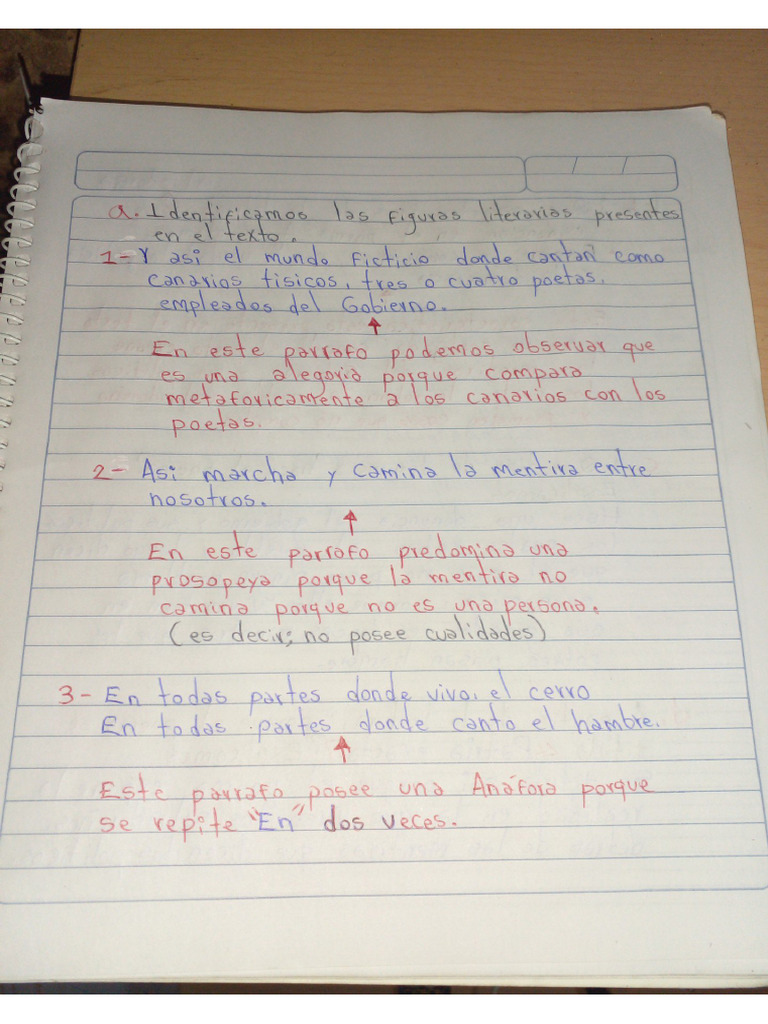 a. Identificamos las figuras literarias presentes
en el texto.
1- Y asi el mundo ficticio donde cantan como
canarios tisicos, tres o cuatro poetas,
empleados del Gobierno.
En este parrafo podemos observar que
es una alegoria porque compara
metaforicamente a los canarios con los
poetas.
2- Asi marcha y camina la mentira entre
nosotros.
En este parrafo predomina una
prosopeya porque la mentira no
camina porque no es una persona.
(es decir; no posee cualidades)
3- En todas partes donde vivo, el cerro
En todas partes donde canto el hambre.
Este parrafo posee una Anáfora porque
se repite "En" dos veces.